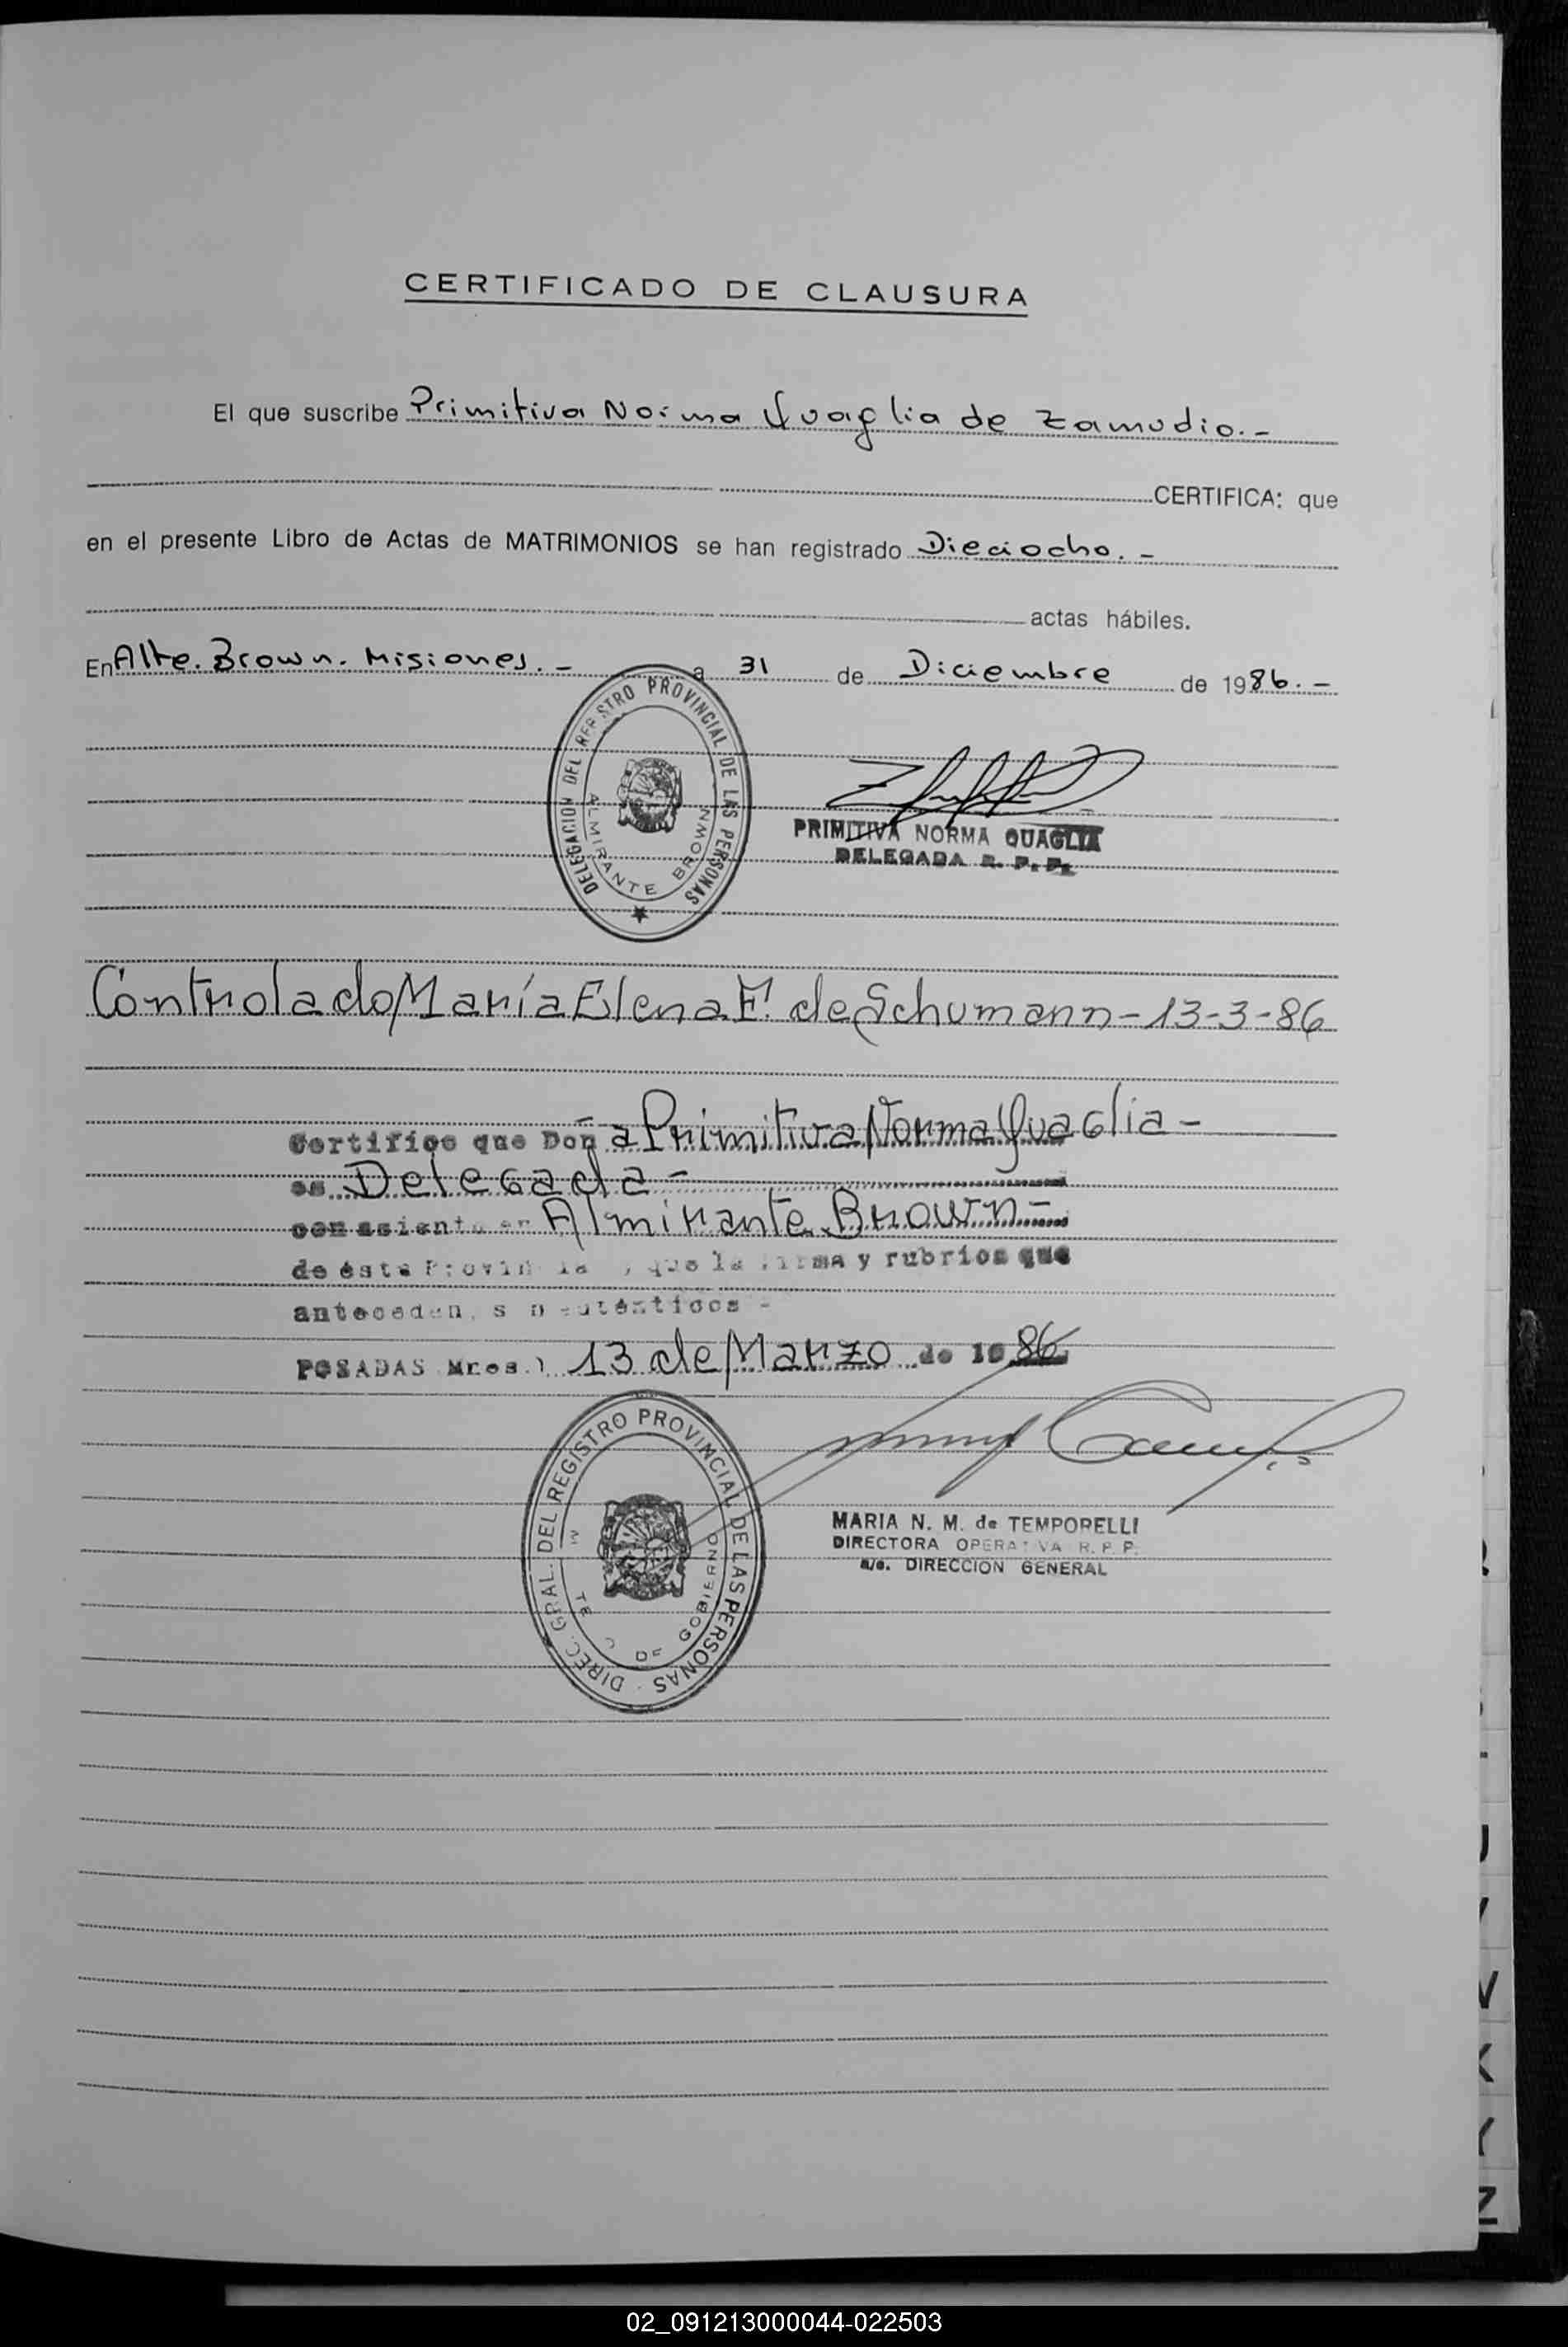 CERTIFICADO DE CLAUSURA
El que suscribe Primitiva Norma Quaglia de Zamudio.-
CERTIFICA: que
en el presente Libro de Actas de MATRIMONIOS se han registrado Dieciocho.-
actas hábiles.
En Alte. Brown. Misiones.- a 31 de Diciembre de 1986.-
DELEGACION DEL REGISTRO PROVINCIAL DE LAS PERSONAS
ALMIRANTE BROWN
PRIMITIVA NORMA QUAGLIA
DELEGADA R. P. P.
Controlado María Elena F. de Schumann - 13-3-86
Certifico que Don a Primitiva Norma Quaglia -
es Delegada -
con asiento en Almirante Brown -
de ésta Provincia, que la firma y rubrica que
anteceden, son auténticos -
POSADAS Mnes.) 13 de Marzo de 1986
DIREC. GRAL. DEL REGISTRO PROVINCIAL DE LAS PERSONAS
DE GOBIERNO
MARIA N. M. de TEMPORELLI
DIRECTORA OPERATIVA R. P. P.
a/c. DIRECCION GENERAL
U
V
W
X
Y
Z
02_091213000044-022503